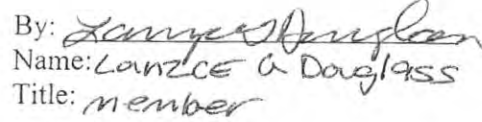 By: Lanzce G Douglass
Name: Lanzce G Douglass
Title: member